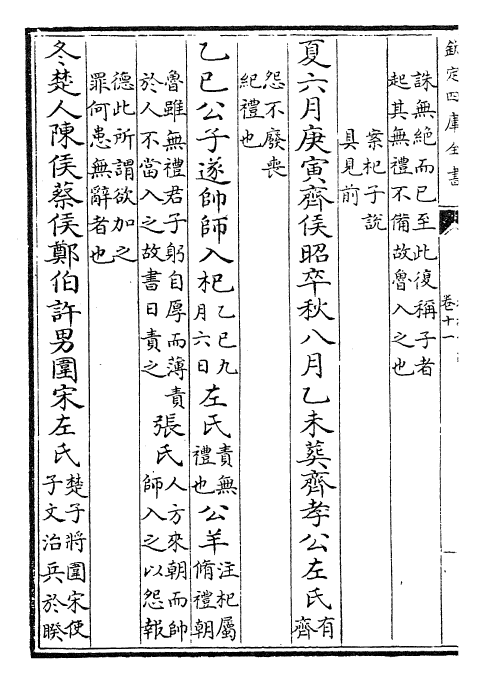 欽定四庫全書
卷十一
誅無絕而已至此復稱子者
起其無禮不備故魯入之也
案杞子說
具見前
夏六月庚寅齊侯昭卒秋八月乙未葬齊孝公左氏有齊
怨不廢喪
紀禮也
乙巳公子遂帥師入杞乙巳九月六日左氏責無禮也公羊注杞屬脩禮朝
魯雖無禮君子躬自厚而薄責於人不當入之故書日責之張氏人方來朝而帥師入之以怨報
德此所謂欲加之
罪何患無辭者也
冬楚人陳侯蔡侯鄭伯許男圍宋左氏楚子將圍宋使子文治兵於睽